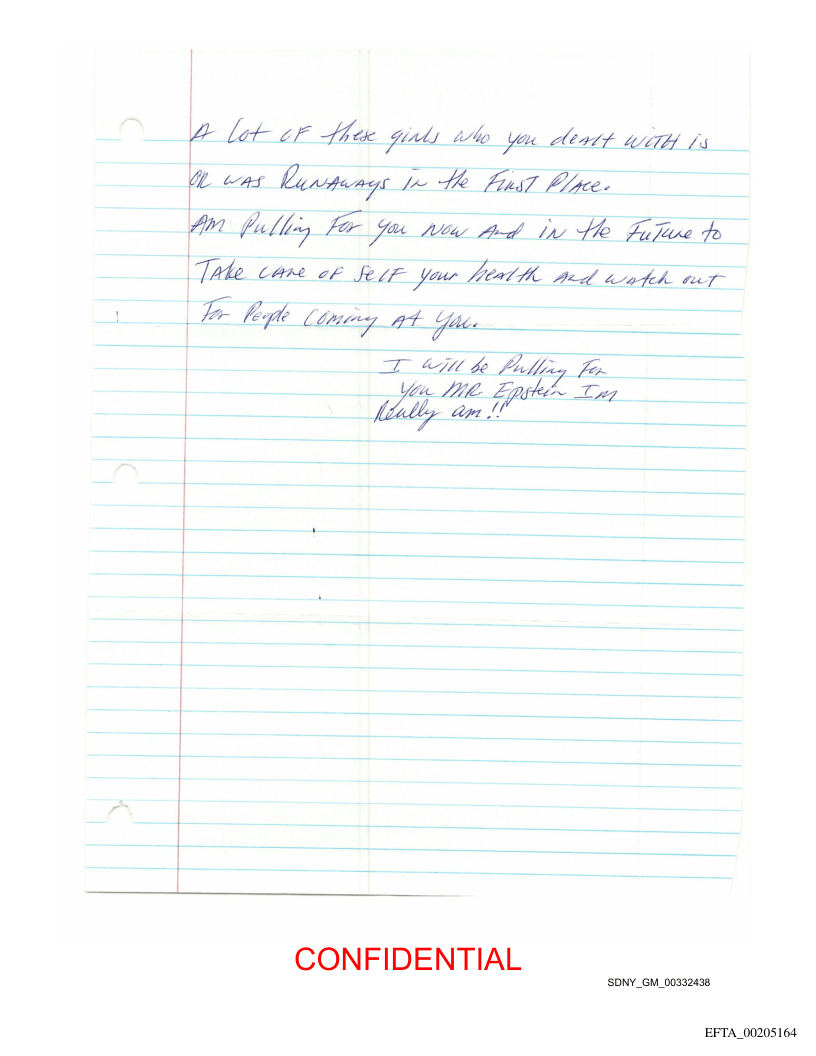 A lot of these girls who you dealt with is
or was Runaways in the First Place.
Am Pulling For you Now And in the Future to
Take care of self your health and watch out
For People coming At you.
I will be Pulling For
You MR. Epstein Im
Really am!!
CONFIDENTIAL
SDNY_GM_00332438
EFTA_00205164